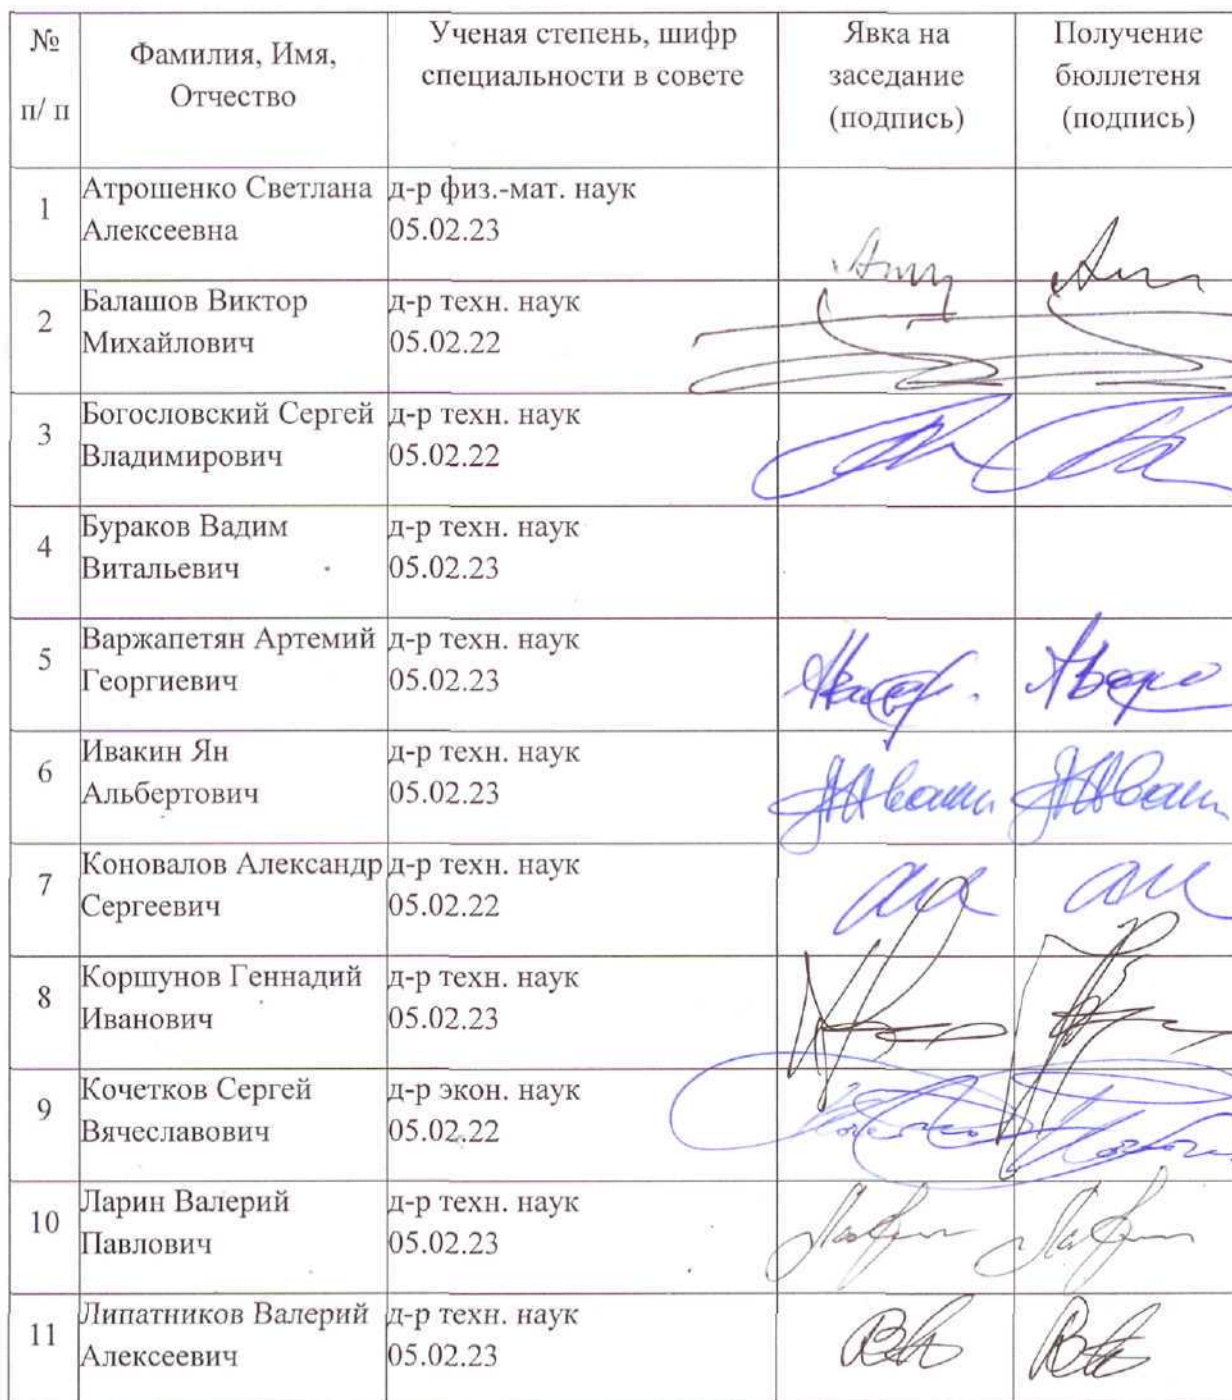 №
п/ п
Фамилия, Имя,
Отчество
Ученая степень, шифр
специальности в совете
Явка на
заседание
(подпись)
Получение
бюллетеня
(подпись)
1
Атрошенко Светлана
Алексеевна
д-р физ.-мат. наук
05.02.23
2
Балашов Виктор
Михайлович
д-р техн. наук
05.02.22
3
Богословский Сергей
Владимирович
д-р техн. наук
05.02.22
4
Бураков Вадим
Витальевич
д-р техн. наук
05.02.23
5
Варжапетян Артемий
Георгиевич
д-р техн. наук
05.02.23
6
Ивакин Ян
Альбертович
д-р техн. наук
05.02.23
7
Коновалов Александр
Сергеевич
д-р техн. наук
05.02.22
8
Коршунов Геннадий
Иванович
д-р техн. наук
05.02.23
9
Кочетков Сергей
Вячеславович
д-р экон. наук
05.02.22
10
Ларин Валерий
Павлович
д-р техн. наук
05.02.23
11
Липатников Валерий
Алексеевич
д-р техн. наук
05.02.23